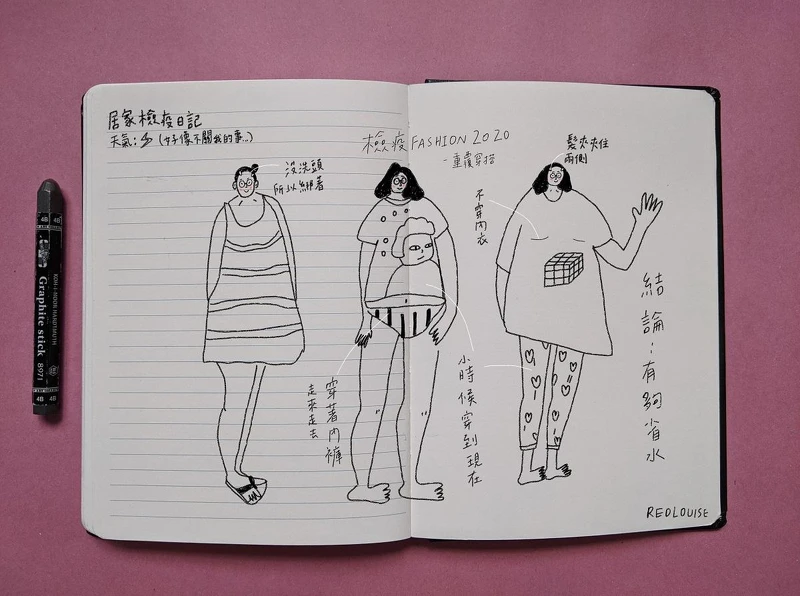 居家檢疫日記
天氣：(好像不關我的事..)
檢疫 FASHION 2020
-重覆穿搭
沒洗頭
所以綁著
穿著內褲
走來走去
小時候穿到現在
不穿內衣
髮夾夾住
兩側
結論：有夠省水
REDLOUISE
4B 4B
KOH-I-NOOR HARDTMUTH
Graphite stick
8971
4B 4B